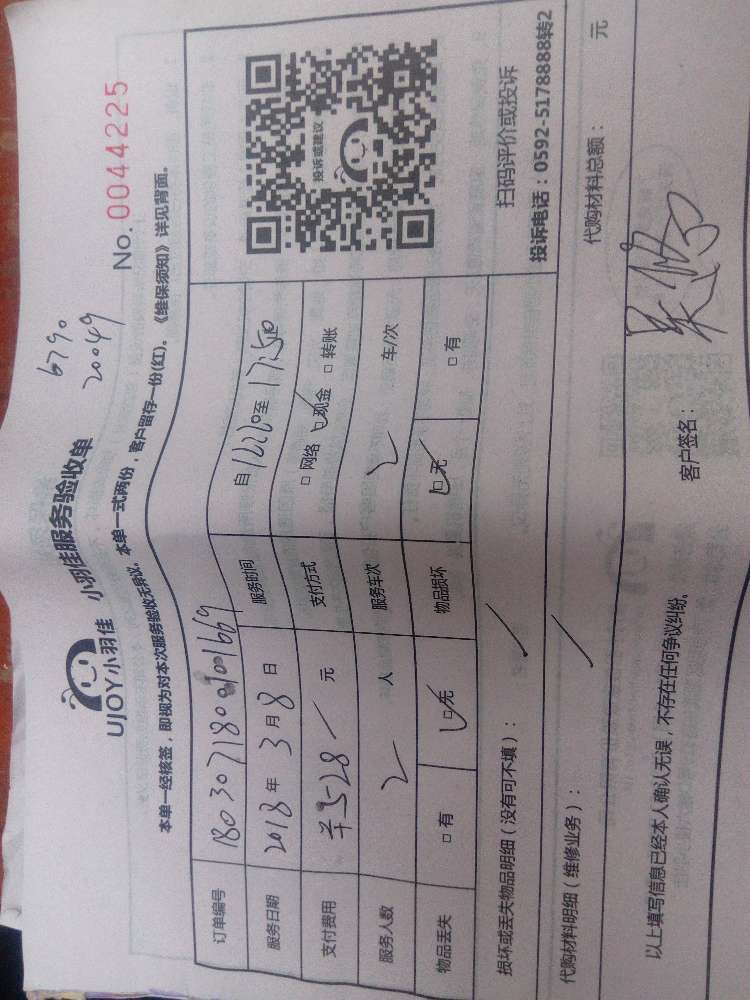 6790
20049
UJOY小羽佳 小羽佳服务验收单
No. 0044225
本单一经核签，即视为对本次服务验收无异议。本单一式两份，客户留存一份(红)。《维保须知》详见背面。
订单编号
服务日期 2018年3月8日 服务时间 自 至17:50
支付费用 528 元 支付方式 □网络 □现金 □转账
服务人数 2 人 服务车次 2 车/次
物品丢失 □有 □无 物品损坏 □无 □有
投诉或建议
扫码评价或投诉
投诉电话：0592-5178888转2
损坏或丢失物品明细（没有可不填）：
代购材料明细（维修业务）： 代购材料总额： 元
以上填写信息已经本人确认无误，不存在任何争议纠纷。 客户签名：